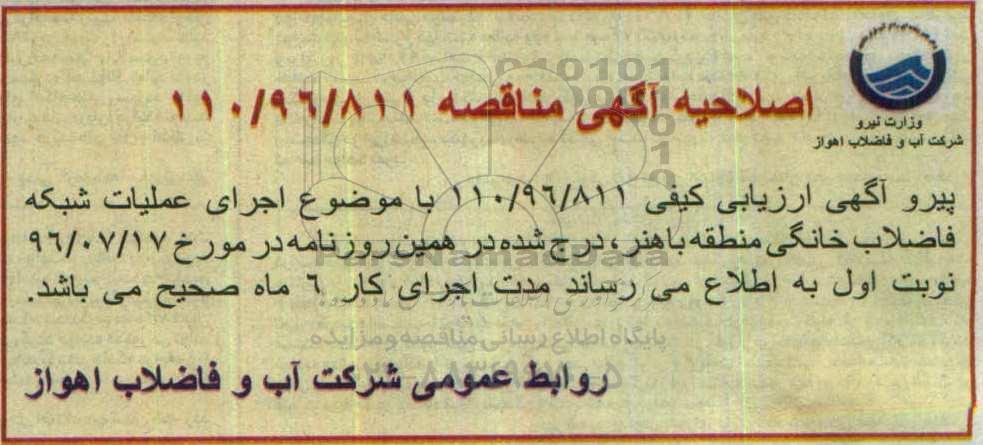 وزارت نیرو
شرکت آب و فاضلاب اهواز
اصلاحیه آگهی مناقصه ۱۱۰/۹۶/۸۱۱
پیرو آگهی ارزیابی کیفی ۱۱۰/۹۶/۸۱۱ با موضوع اجرای عملیات شبکه
فاضلاب خانگی منطقه باهنر ، درج شده در همین روزنامه در مورخ ۹۶/۰۷/۱۷
نوبت اول به اطلاع می رساند مدت اجرای کار ۶ ماه صحیح می باشد.
ParsNamadData
پایگاه اطلاع رسانی مناقصه و مزایده
روابط عمومی شرکت آب و فاضلاب اهواز